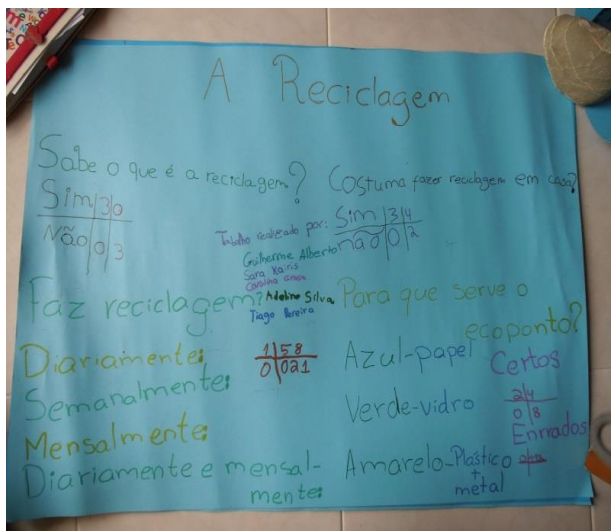 A Reciclagem
Sabe o que é a reciclagem?
Sim 3 0
Não 0 3
Costuma fazer reciclagem em casa?
Sim 3 4
não 0 2
Trabalho realizado por:
Guilherme Alberto
Sara
Carolina
Adelino Silva
Tiago Pereira
Faz reciclagem?
Diariamente:
Semanalmente:
Mensalmente:
Diariamente e mensal-
mente:
1 5 8
0 0 2 1
Para que serve o
ecoponto?
Azul-papel
Verde-vidro
Amarelo-Plástico
+
metal
Certos
2 4
0 8
Enrrados